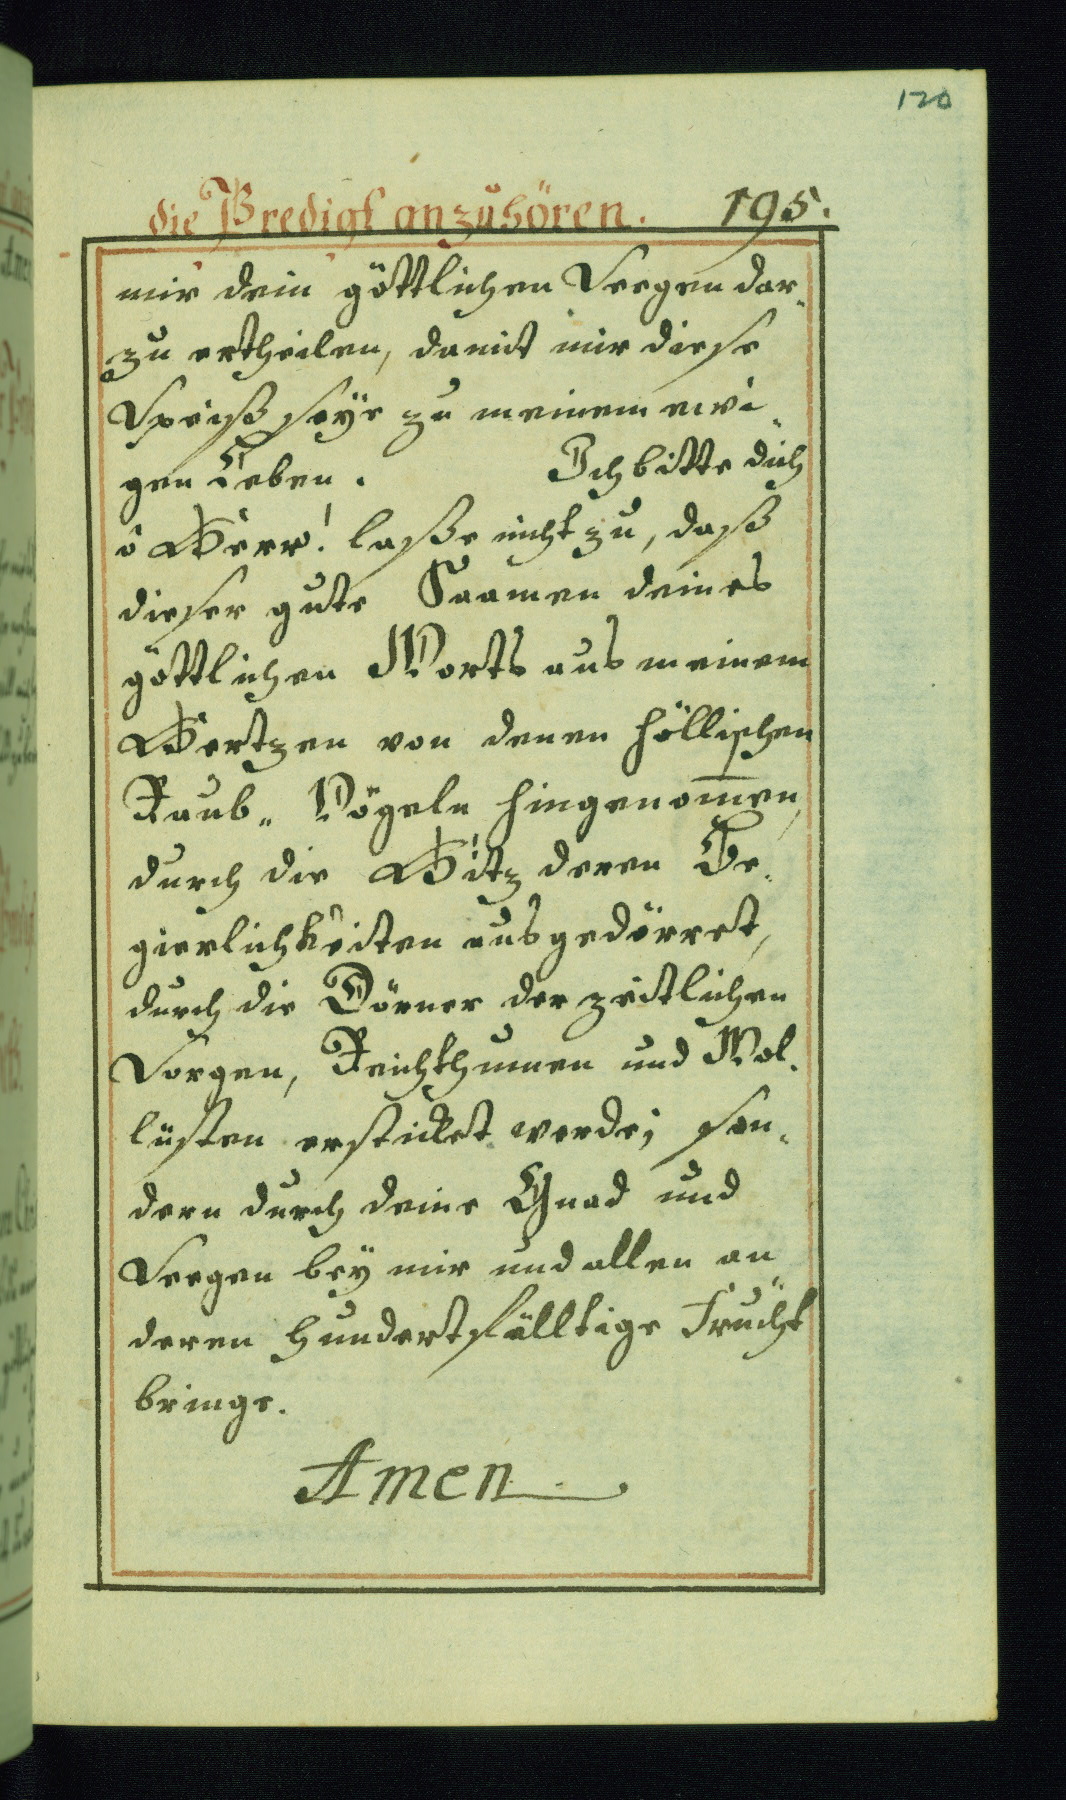 120
die Predigt anzuhören. 195.
mir dein göttlichen Seegen dar-
zu ertheilen, damit mir diese
Speiß seÿe zu meinem ewi-
gen Leben. Ich bitte dich
ô Herr! laße nicht zu, daß
dieser gute Saamen deines
göttlichen Worts aus meinem
Hertzen von denen höllischen
Raub- Vögeln hingenom̅en,
durch die Hitz deren Be-
gierlichkeiten ausgedörret,
durch die Dörner der zeitlichen
Sorgen, Reichthumen und Wol-
lüsten ersticket werde; son-
dern durch deine Gnad und
Seegen beÿ mir und allen an
deren hundertfälltige Frucht
bringe.
Amen